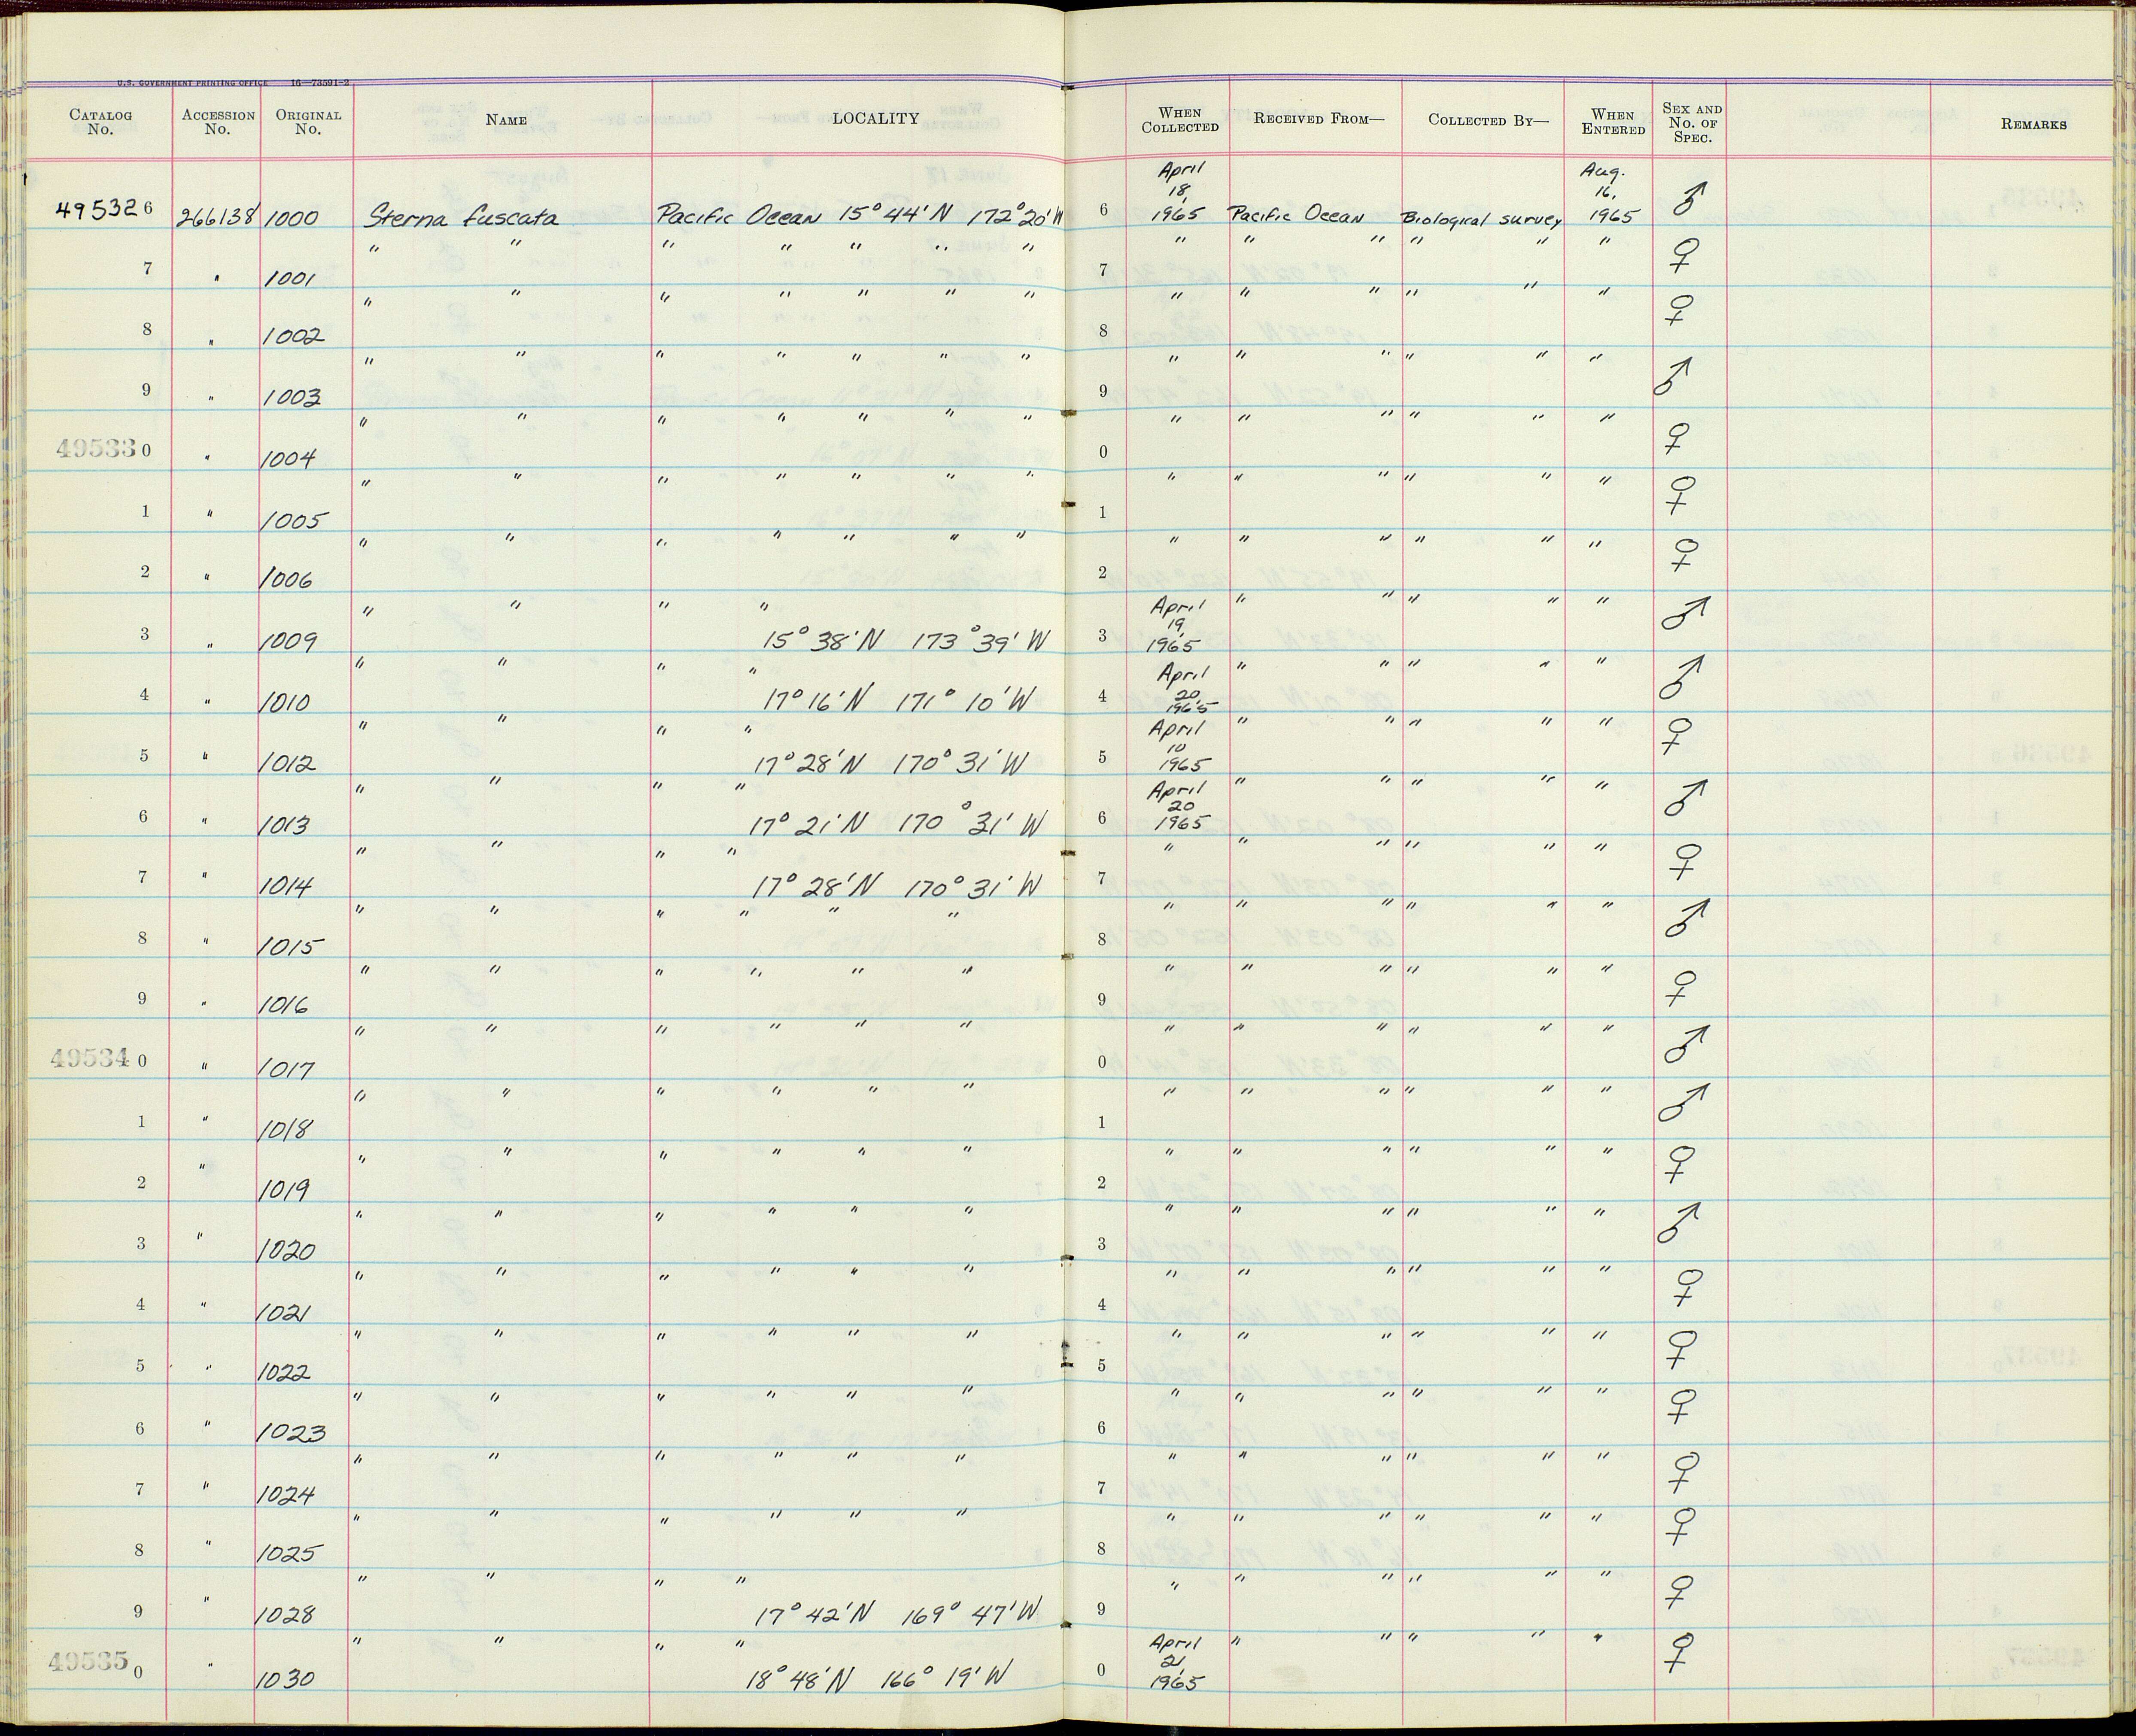 U.S. GOVERNMENT PRINTING OFFICE 16—73591-2
CATALOG No. ACCESSION No. ORIGINAL No. NAME LOCALITY WHEN COLLECTED RECEIVED FROM— COLLECTED BY— WHEN ENTERED SEX AND No. OF SPEC. REMARKS
495326 266138 1000 Sterna fuscata Pacific Ocean 15° 44' N 172° 20' W 6 April 18, 1965 Pacific Ocean Biological survey Aug. 16, 1965 ♂
7 " 1001 " " " " " " " 7 " " " " " " ♀
8 " 1002 " " " " " " " 8 " " " " " " ♀
9 " 1003 " " " " " " " 9 " " " " " " ♂
495330 " 1004 " " " " " " " 0 " " " " " " ♀
1 " 1005 " " " " " " " 1 " " " " " " ♀
2 " 1006 " " " " " " " 2 " " " " " " ♀
3 " 1009 " " " " 15° 38' N 173° 39' W 3 April 19, 1965 " " " " " ♂
4 " 1010 " " " " 17° 16' N 171° 10' W 4 April 20, 1965 " " " " " ♂
5 " 1012 " " " " 17° 28' N 170° 31' W 5 April 10 1965 " " " " " ♀
6 " 1013 " " " " 17° 21' N 170° 31' W 6 April 20 1965 " " " " " ♂
7 " 1014 " " " " 17° 28' N 170° 31' W 7 " " " " " " ♀
8 " 1015 " " " " " " 8 " " " " " " ♂
9 " 1016 " " " " " " 9 " " " " " " ♀
495340 " 1017 " " " " " " 0 " " " " " " ♂
1 " 1018 " " " " " " 1 " " " " " " ♂
2 " 1019 " " " " " " 2 " " " " " " ♀
3 " 1020 " " " " " " 3 " " " " " " ♂
4 " 1021 " " " " " " 4 " " " " " " ♀
5 " 1022 " " " " " " 5 " " " " " " ♀
6 " 1023 " " " " " " 6 " " " " " " ♀
7 " 1024 " " " " " " 7 " " " " " " ♀
8 " 1025 " " " " " " 8 " " " " " " ♀
9 " 1028 " " " " 17° 42' N 169° 47' W 9 " " " " " " ♀
495350 " 1030 " " " " 18° 48' N 166° 19' W 0 April 21, 1965 " " " " " ♀